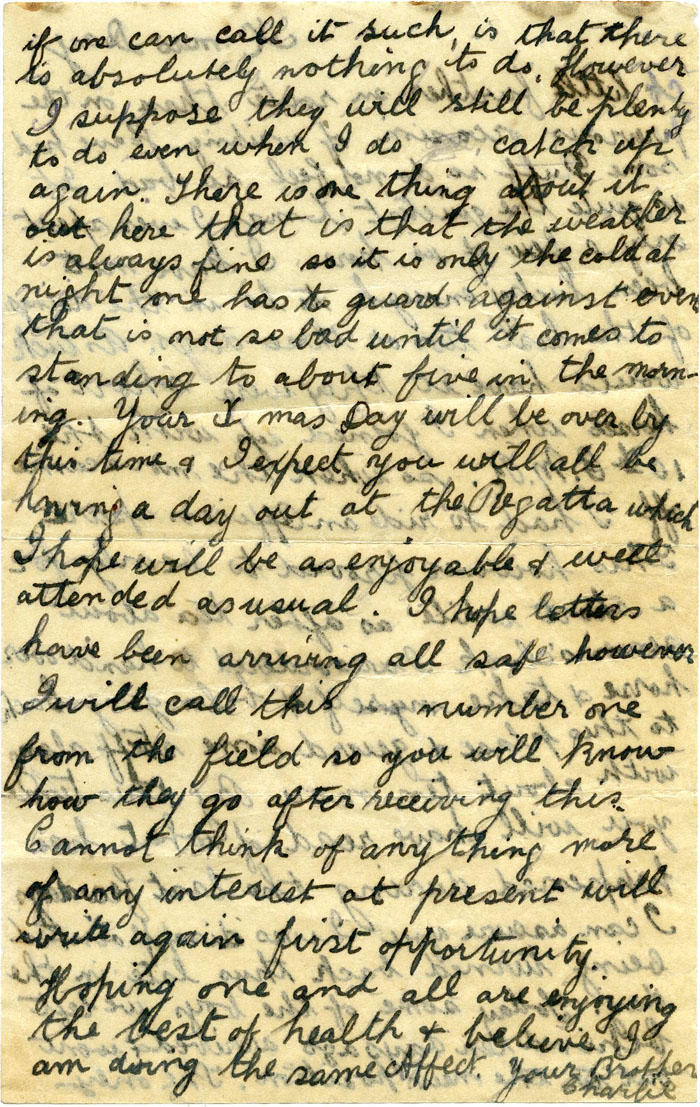 if one can call it such, is that there
is absolutely nothing to do. However
I suppose they will still be plenty
to do even when I do catch up
again. There is one thing about it
out here that is that the weather
is always fine so it is only the cold at
night one has to guard against even
that is not so bad until it comes to
standing to about five in the morn-
ing. Your X mas Day will be over by
this time & I expect you will all be
having a day out at the Regatta which
I hope will be as enjoyable & well
attended as usual. I hope letters
have been arriving all safe however
I will call this number one
from the field so you will know
how they go after receiving this.
Cannot think of anything more
of any interest at present will
write again first opportunity.
Hoping one and all are enjoying
the best of health & believe I
am doing the same Affect. Your Brother
Charlie